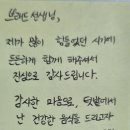 브래드 선생님,
제가 많이 힘들었던 시기에
든든하게 함께 해주셔서
진심으로 감사드립니다.
감사한 마음으로, 텃밭에서
난 건강한 음식을 드리고자